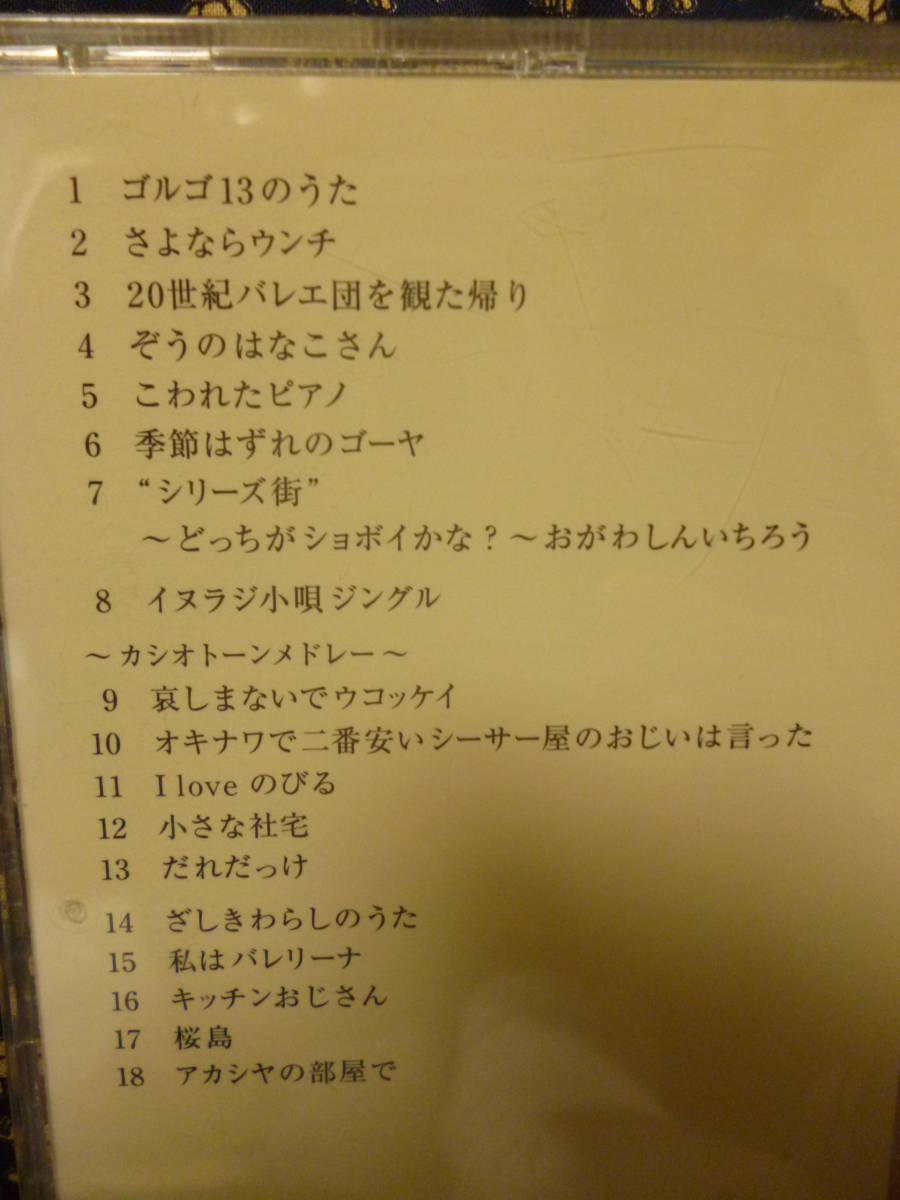 1 ゴルゴ13のうた
2 さよならウンチ
3 20世紀バレエ団を観た帰り
4 ぞうのはなこさん
5 こわれたピアノ
6 季節はずれのゴーヤ
7 “シリーズ街”
～どっちがショボイかな？～おがわしんいちろう
8 イヌラジ小唄ジングル
～カシオトーンメドレー～
9 哀しまないでウコッケイ
10 オキナワで二番安いシーサー屋のおじいは言った
11 I love のびる
12 小さな社宅
13 だれだっけ
14 ざしきわらしのうた
15 私はバレリーナ
16 キッチンおじさん
17 桜島
18 アカシヤの部屋で